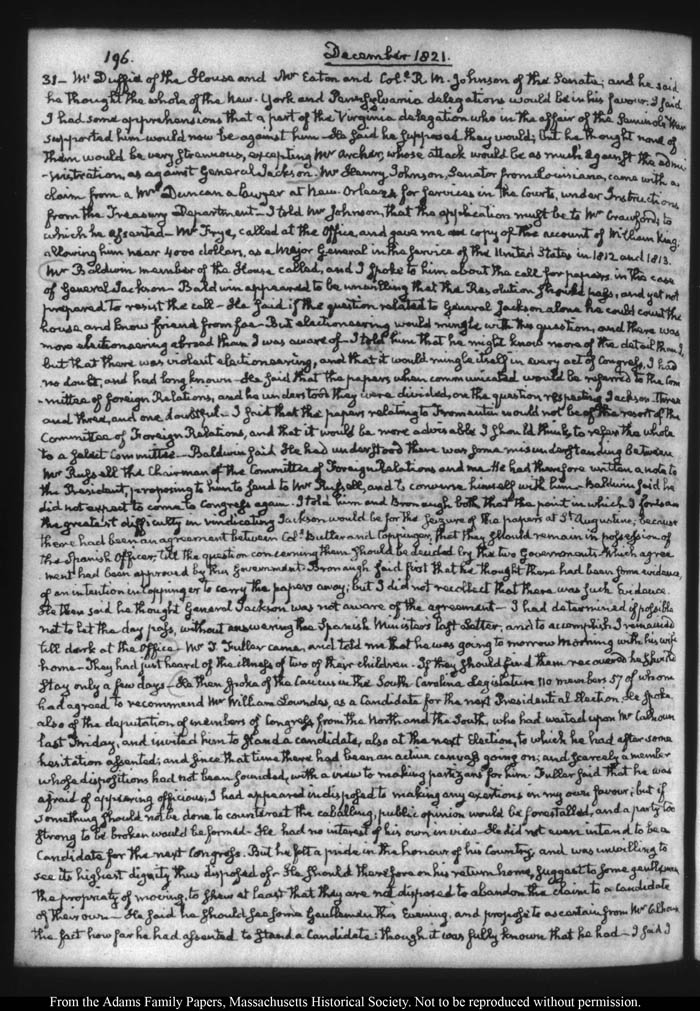 196.
December 1821.
31— Mr Duffie of the House and Mr Eaton and Coll. R. M. Johnson of the Senate; and he said
he thought the whole of the New-York and Pennsylvania delegations would be in his favour. I said
I had some apprehensions that a part of the Virginia delegation who in the affair of the Seminole War
supported him would now be against him— He said he supposed they would; but he thought none of
them would be very strenuous, excepting Mr Archer, whose attack would be as much against the admi-
-nistration, as against General Jackson. Mr Henry Johnson, Senator from Louisiana, came with a
claim from a Mr Duncan a Lawyer at New-Orleans for services in the Courts, under Instructions
from the Treasury Department— I told Mr Johnson, that the application must be to Mr Crawford; to
which he assented— Mr Frye, called at the Office, and gave me a copy of the account of William King;
allowing him near 4000 dollars, as a Major General in the service of the United States in 1812 and 1813.
Mr Baldwin member of the House called, and I spoke to him about the call for papers in the case
of General Jackson— Baldwin appeared to be unwilling that the Resolution should pass, and yet not
prepared to resist the call— He said if the question related to General Jackson alone he could count the
house and know friend from foe— But electioneering would mingle with this question, and there was
more electioneering abroad than I was aware of— I told him that he might know more of the detail than I,
but that there was violent electioneering, and that it would mingle itself in every act of Congress, I had
no doubt, and had long known— He said that the papers when communicated would be referred to the Com-
-mittee of foreign Relations, and he understood they were divided, on the question respecting Jackson. Three
and three, and one doubtful— I said that the papers relating to Fromentin would not be of the resort of the
Committee of Foreign Relations, and that it would be more advisable I should think, to refer the whole
to a select Committee— Baldwin said He had understood there was some misunderstanding between
Mr Russell the Chairman of the Committee of Foreign Relations and me. He had therefore written a note to
the President, proposing to him to send to Mr Russell, and to converse himself with him— Baldwin said he
did not expect to come to Congress again. I told him and Bronaugh both that the point in which I foresaw
the greatest difficulty in vindicating Jackson would be for the seizure of the papers at St Augustine; because
there had been an agreement between Coll. Butler and Coppinger, that they should remain in possession of
the Spanish Officer, till the question concerning them should be decided by the two Governments. Which agree-
-ment had been approved by this Government. Bronaugh said first that he thought there had been some evidence,
of an intention in Coppinger to carry the papers away; but I did not recollect that there was such evidence.
He then said he thought General Jackson was not aware of the agreement— I had determined if possible
not to let the day pass, without answering the Spanish Minister's last Letter, and to accomplish I remained
till dark at the Office— Mr T. Fuller came, and told me that he was going to morrow morning with his wife
home— They had just heard of the illness of two of their children. If they should find them recovered he should
stay only a few days— He then spoke of the Caucus in the South Carolina Legislature 110 members 57 of whom
had agreed to recommend Mr William Lowndes, as a Candidate for the next Presidential Election. He spoke
also of the deputation of members of Congress from the North and the South, who had waited upon Mr Calhoun
last Friday, and invited him to stand a candidate, also at the next Election, to which he had after some
hesitation assented; and since that time there had been an active canvass going on; and scarcely a member
whose dispositions had not been sounded, with a view to making partizans for him. Fuller said that he was
afraid of appearing officious, I had appeared indisposed to making any exertions in my own favour; but if
something should not be done to counteract the caballing, public opinion would be forestalled, and a party too
strong to be broken would be formed— He had no interest of his own in view— He did not even intend to be a
Candidate for the next Congress. But he felt a pride in the honour of his Country, and was unwilling to
see its highest dignity thus disposed of— He should therefore on his return home, suggest to some gentlemen
the propriety of moving, to shew at least that they are not disposed to abandon the claim to a candidate
of their own— He said he should see some Gentlemen this Evening, and propose to ascertain from Mr Calhoun
the fact how far he had assented to stand a Candidate: though it was fully known that he had— I said I
From the Adams Family Papers, Massachusetts Historical Society. Not to be reproduced without permission.